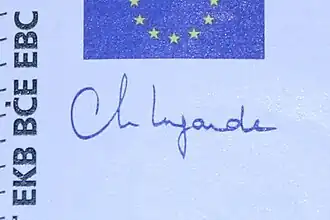 EKB BCE EBC
Ch Lagarde